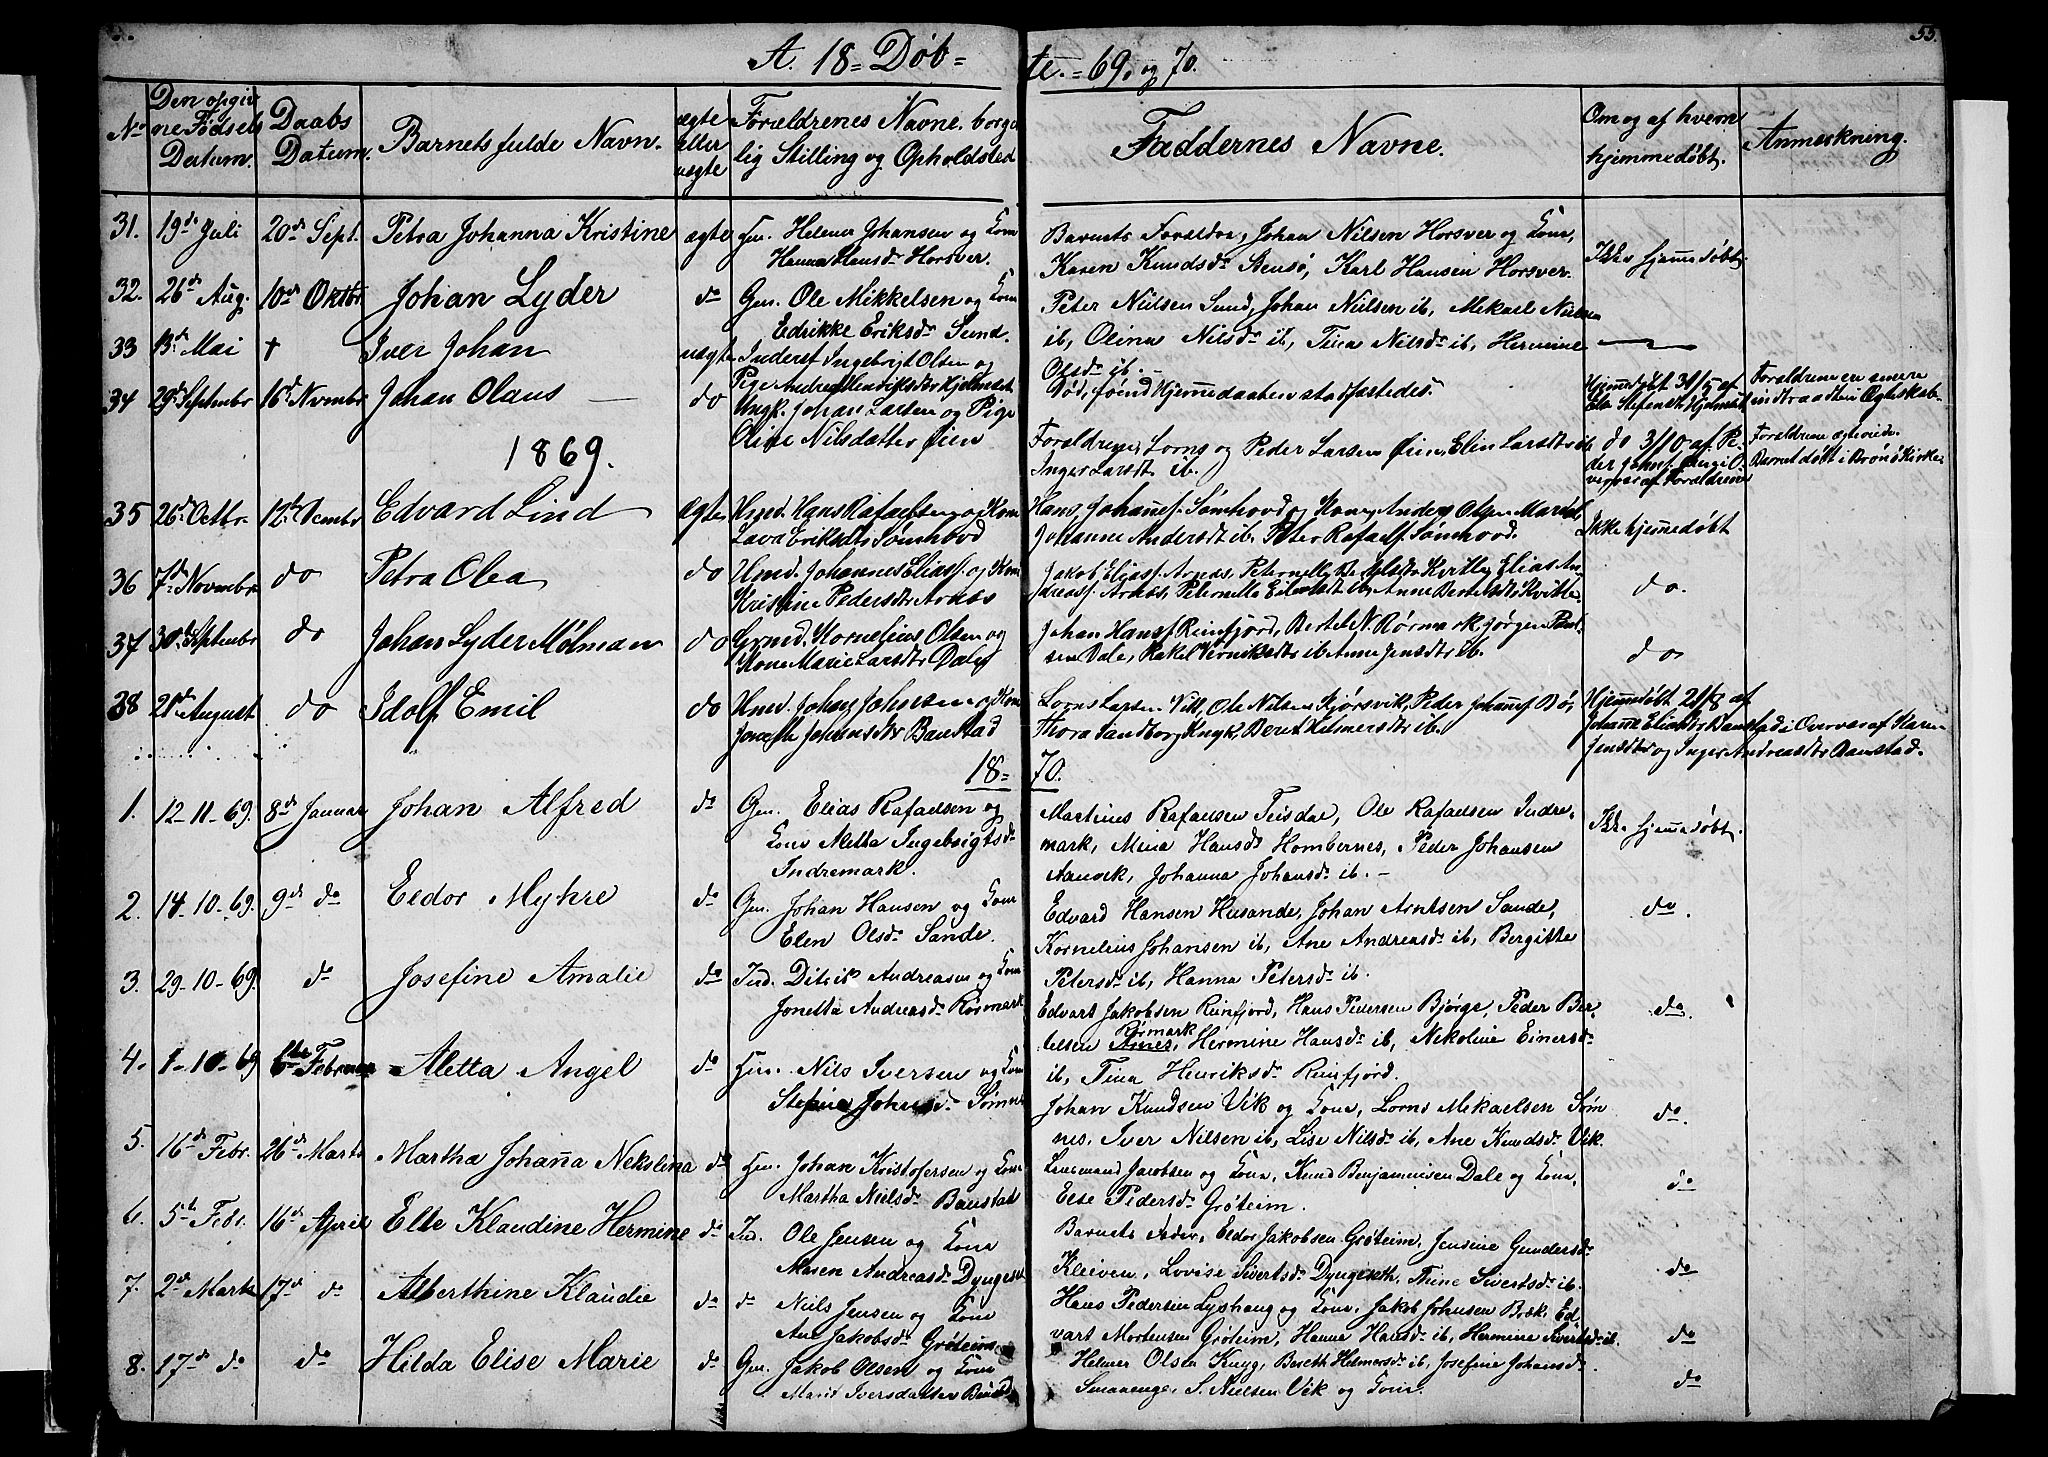 55.
A. 18 = Døb = te. = 69. og 70.
No Den opgivne Fødsels Datum. Daabs Datum. Barnets fulde Navn. ægte eller uægte Forældrenes Navne, borgerlig Stilling og Opholdsted Faddernes Navne. Om og af hvem hjemmedøbt. Anmerkning.
31. 19de Juli 20de Sept. Petra Johanna Kristine ægte Johansen og Kone
Horsver.
Barnets Forældre, Johan Nilsen Horsver og Kone,
Karen Knudsdr Stensø, Karl Hansen Horsver.
Ikke hjemmedøbt
32. 26de Aug. 10de Oktbr Johan Lyder do Gm. Ole Mikkelsen og Kone
Edrikke Eriksdr Sund.
Peter Nielsen Sund, Johan Nielsen ib, Mekael Nielsen
ib, Olina Nilsdr ib, Tina Nilsdr ib, Hermine
Olsdr ib. -
33 13de Mai † Iver Johan uægte Inderst Ingebrigt Olsen og
Pige
Død, førend Hjemmedaaben stadfæstedes.
Hjemmedøbt 31/5 af
Forældrene ere senere
indtraadte i Ægteskab
34 29de Septembr 16de Novmbr Johan Olaus do Ungk. Johan Larsen og Pige
Oline Nilsdatter Øien
Forældrene, Lorns og Peder Larsen Øien, Elen Larsdtr ib
Inger Larsdt ib.
do 3/10 af Pe-
Forældrene ægteviede.
Barnet døbt i Brønø Kirke
1869.
35 26de Octbr. 12te Decmbr Edvard Lind Ægte Hmd. Hans Rafaelsen og Kone
Lava Eriksdtr Sømhovd
Hans Johannesf. Sømhovd og Kone, Anders Olsen
Johanne Andersdt ib. Peter Rafaelf Sømhovd.
Ikke hjemmedøbt
36 7de Novembr do Petra Olea do Hmd. Johannes Eliasf. og Kone
Kristine Pedersdtr Arnæs
Jakob Eliasf. Arnæs, Peternelle Bertelsdtr Kvitle, Elias An-
dreasf. Arnæs, Peternelle ib, Anne Bertelsdtr Kvitle.
do.
37 30te Septembr do Johan Lyder Mølman do Grmd. Kornelius Olsen og
Kone Marie Larsdtr Dale
Johan Hansf Reinfjord, Bertel N. Rørmark, Jørgen Paul-
sen Dale, Rakel ib. Anne Jensdtr ib.
do
38 21de August do Idolf Emil do Hmd. Johan Johnsen og Kone
Johansdtr Baustad
Lorns Larsen Vik, Ole Nilsen Kjørsvik, Peder Johannesf Bø,
Thora Sandborg Knyk, Beret Helmersdtr ib.
Hjemmedøbt 21/8 af
Johanne Eliasdtr Baustad i Overvær af Karen
Jensdtr og Inger Andreasdtr Baustad.
18 = 70.
1. 12-11-69. 8de Januar Johan Alfred do Gm. Elias Rafaelsen og
Kone Metta Ingebrigtsdr
Indremark.
Martines Rafaelsen Teisdal, Ole Rafaelsen Indre-
mark, Mina Hansdr Hombornes, Peder Johansen
Aanvik, Johanna Johansdr ib. -
Ikke hjemmedøbt.
2. 14-10-69. 9de do Eldor Myhre do Gm. Johan Hansen og Kone
Elen Olsdr Sande.
Edvard Hansen Husande, Johan Arntsen Sande,
Kornelius Johansen ib, Ane Andreasdr ib, Bergitte
Petersdr ib, Hanna Petersdr ib.
do.
3. 29-10-69. do Josefine Amalie do Ind. Ditrik Andreasen og Kone
Jonetta Andreasdr Rørmark
Edvart Jakobsen Reinfjord, Hans Pedersen Bjørge, Peder Ber-
telsen Arnes, Rørmark Hermine Hansdr ib, Nekoline Einersdr
ib, Tina Henriksdr Reinfjord.
do.
4. 1-10-69 6te Februar Aletta Angel do Nils Iversen og Kone
Stefina Johnsdr Sømnes
Johan Knudsen Vik og Kone, Lorns Mekaelsen Søm-
nes, Iver Nilsen ib, Lise Nilsdr ib, Ane Knudsdr Vik.
do.
5. 16de Febr. 26de Marts Martha Johanna Nekolina do Johan Kristofersen og Kone
Martha Nielsdr Baustad
Lensmand Jacobsen og Kone, Knud Benjaminsen Dale og Kone,
Else Pedersdr Grøteim.
do
6. 5te Febr. 16de April Else Klaudine Hermine do Ind. Ole Jensen og Kone
Maren Andreasdr Dyngeset
Barnets Fader, Eldor Jakobsen Grøteim, Jensine Gundersdr
Kleiven, Lovise Sivertsdr Dyngeseth, Trine Sivertsdr ib.
do
7. 2de Marts 17de do Alberthine Klaudie do do Niels Jensen og Kone
Ane Jakobsdr Grøteim
Hans Pedersen Lyshaug og Kone, Jakob Johnsen Bræk, Ed-
vart Mortensen Grøteim, Hanna Hansdr ib, Hermine Sivertsdr ib.
do
8. 17de do do Hilda Elise Marie do Gm. Jakob Olsen og Kone
Marit Iversdatter
Helmer Olsen Knyg, Bereth Helmersdr ib, Josefine Johansdr
Smaaenge, S. Nielsen Vik og Kone.
do